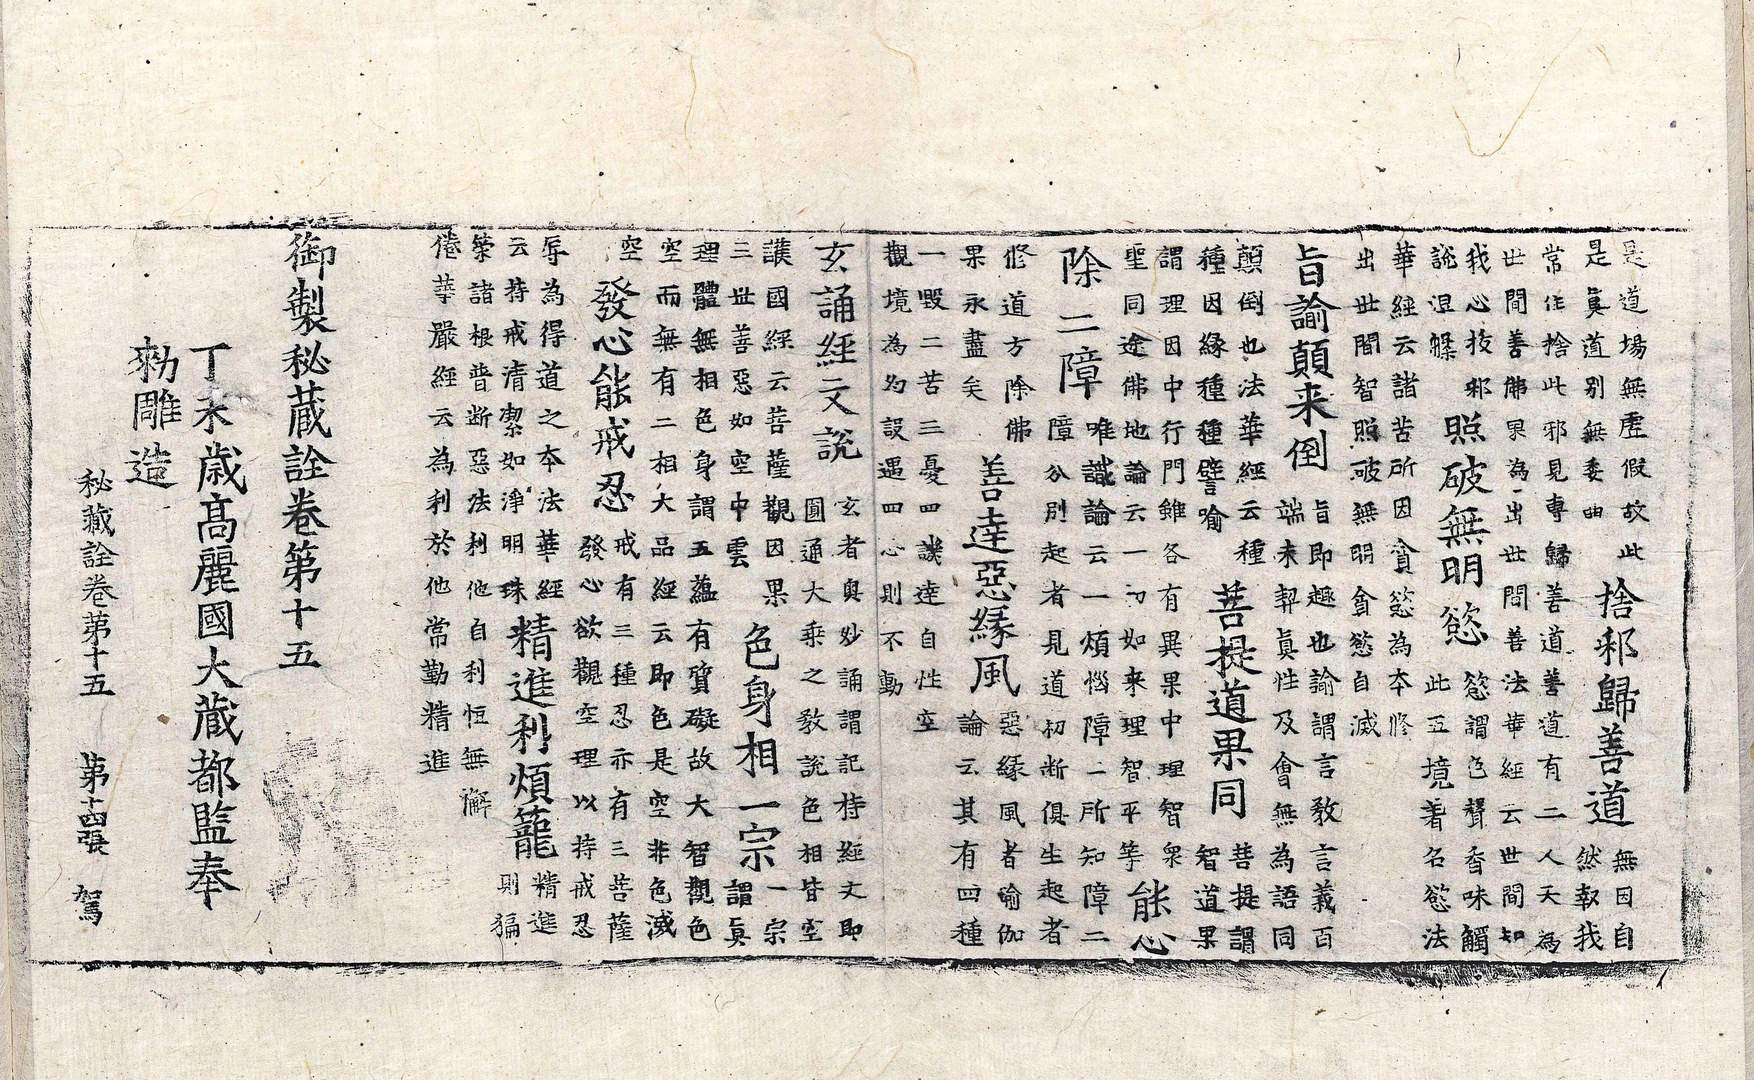 是道場無虛假故此
是眞道別無委曲
捨邪歸善道
無因自
然執我
常住捨此邪見専歸善道善道有二人天為
世間善佛果為出世間善法華經云世間如
我心技邪
說涅槃
照破無明慾
慾謂色聲香味觸
此五境著名慾法
華經云諸苦所因貪慾為本修
出世間智照破無明貪慾自滅
旨諭顛来倒
旨即趣也諭謂言教言義百
端未契眞性及會無為語同
顛倒也法華經云種
種因縁種種譬喻
菩提道果同
菩提謂
智道果
謂理因中行門雖各有異果中理智衆
聖同途佛地論云一切如来理智平等
能心
除二障
唯識論云一煩惱障二所知障二
障分別起者見道初断俱生起者
修道方除佛
果永盡矣
善達惡緣風
惡緣風者瑜伽
論云其有四種
一毀二苦三憂四譏達自性空
觀境為幻設遇四心則不動
玄誦經文說
玄者奧妙誦謂記持經文即
圓通大乘之教說色相皆空
護國經云菩薩觀因果
三世善惡如空中雲
色身相一宗
一宗
謂眞
理體無相色身謂五蘊有質礙故大智觀色
空而無有二相大品經云即色是空非色滅
空
發心能戒忍
戒有三種忍亦有三菩薩
發心欲觀空理以持戒忍
辱為得道之本法華經
云持戒清潔如淨明珠
精進利煩籠
精進
則
諸根普断惡法利他自利恒無懈
倦華嚴經云為利於他常勤精進
御製秘蔵詮卷第十五
丁未歳高麗國大蔵都監奉
勑雕造
秘藏詮卷第十五 第十四張 駕